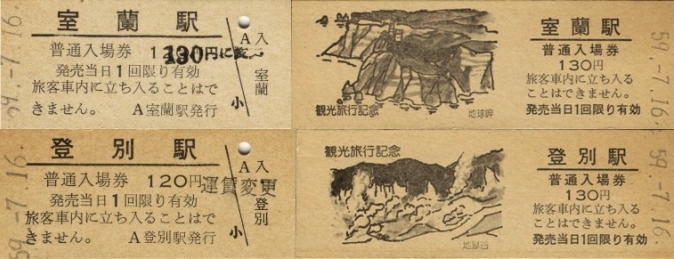 室蘭駅
普通入場券 130円に変更
発売当日1回限り有効
旅客車内に立ち入ることはで
きません。 A室蘭駅発行
A
入
室蘭
小
59.-7.16.
観光旅行記念
地球岬
室蘭駅
普通入場券
130円
旅客車内に立ち入る
ことはできません。
発売当日1回限り有効
59.-7.16.
登別駅
普通入場券 120円
運賃変更
発売当日1回限り有効
旅客車内に立ち入ることはで
きません。 A登別駅発行
A
入
登別
小
59.-7.16.
観光旅行記念
地獄谷
登別駅
普通入場券
130円
旅客車内に立ち入る
ことはできません。
発売当日1回限り有効
59.-7.16.